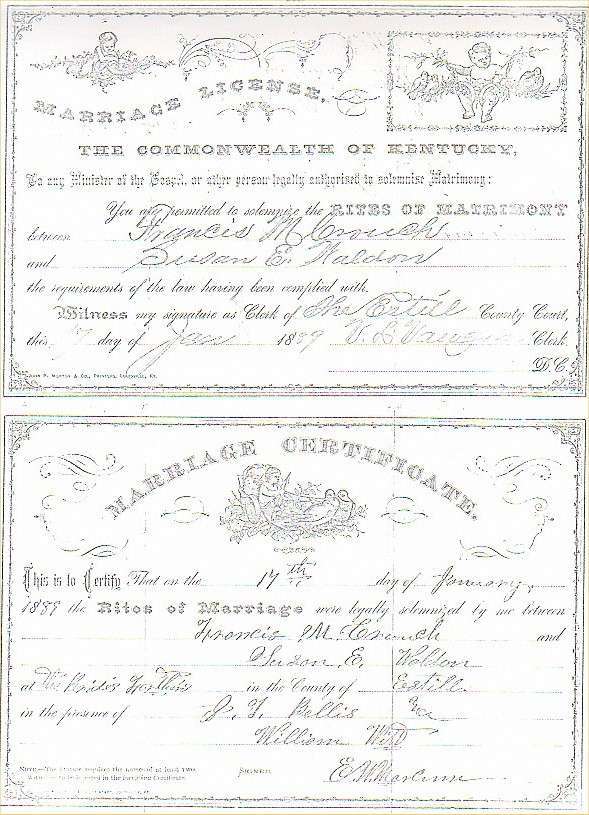 MARRIAGE LICENSE,
THE COMMONWEALTH OF KENTUCKY,
To any Minister of the Gospel, or other person legally authorised to solemnise Matrimony:
You are permitted to solemnize the RITES OF MATRIMONY
between Francis M Crouch
and Susan E. Waldon
the requirements of the law having been complied with.
Witness my signature as Clerk of the Estill County Court,
this 17 day of Jan 1889 Clerk
D.C.
JOHN P. MORTON & CO., PRINTERS, LOUISVILLE, KY.
MARRIAGE CERTIFICATE.
This is to Certify That on the 17th day of January,
1889 the Rites of Marriage were legally solemnized by me between
Francis M. Crouch and
Susan E. Waldon
at The in the County of Estill.
in the presence of J. F. Bellis
William
NOTE—The statute requires the names of at least two
SIGNED